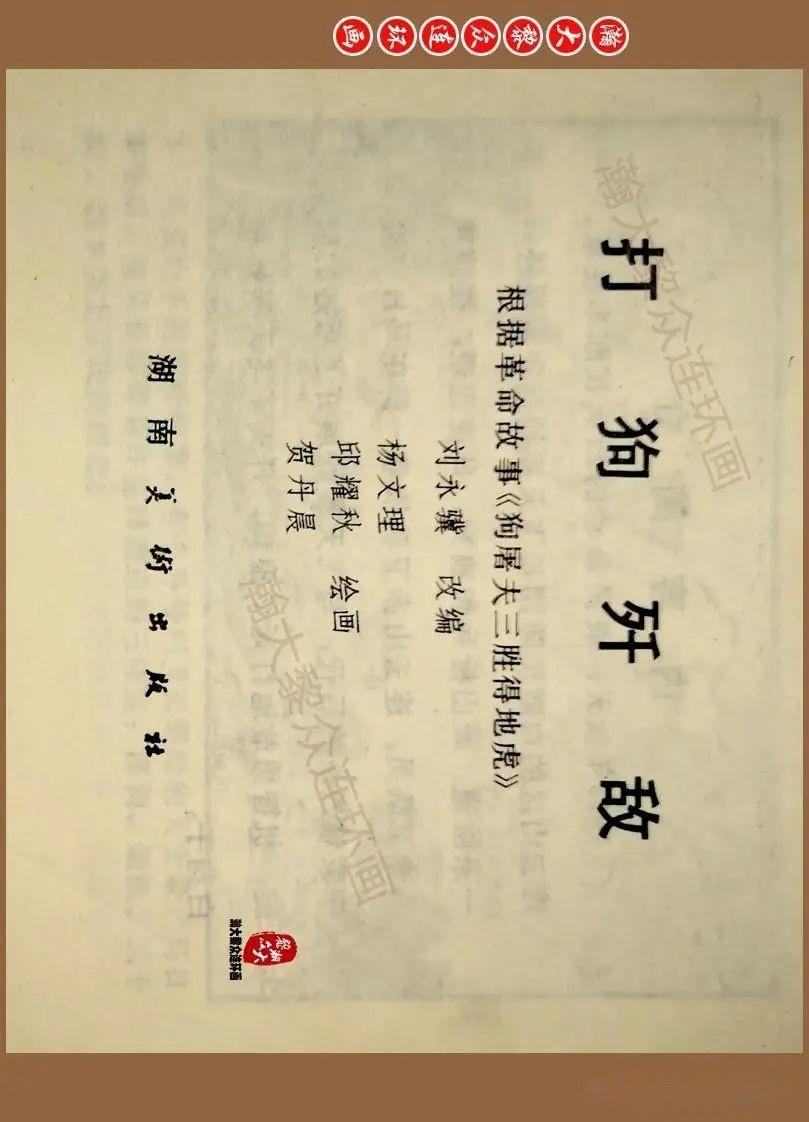 瀚大黎众连环画
打狗歼敌
根据革命故事《狗屠夫三胜得地虎》
刘永骥 改编
杨文理
邱耀秋 绘画
贺丹晨
湖南美術出版社
瀚大黎众连环画
瀚大黎众连环画
瀚大黎众
瀚大黎众连环画